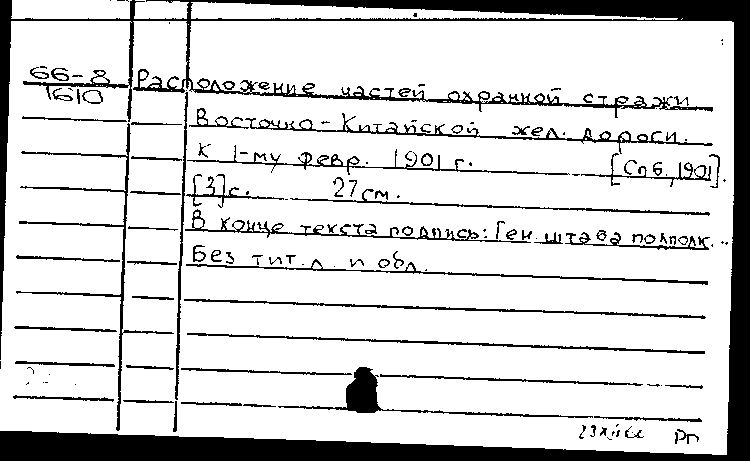 66-8
1610
Расположение частей охранной стражи
Восточно-Китайской жел. дороги.
К 1-му февр. 1901 г. [Спб, 1901].
[3]с. 27 см.
В конце текста подпись: Ген. штаба подполк...
Без тит. л. и обл.
РП